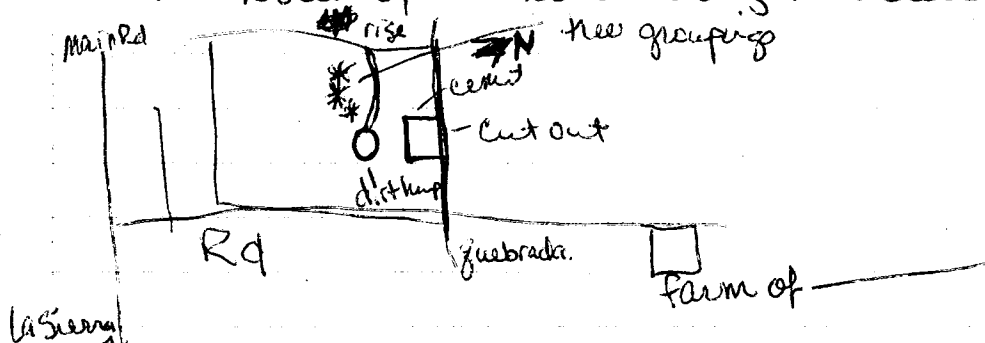 Main Rd
rise
N
tree groupings
cemt
Cut Out
dirt heap
Rd
quebrada.
farm of
La Sierra